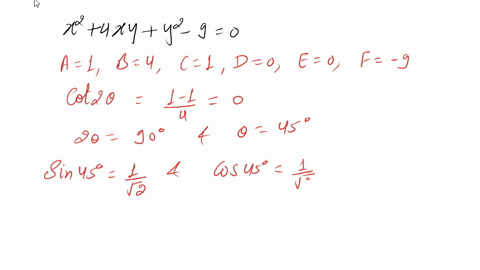 x² + 4xy + y² - 9 = 0
A = 1, B = 4, C = 1, D = 0, E = 0, F = -9
Cot 2θ = (1-1)/4 = 0
2θ = 90° & θ = 45°
Sin 45° = 1/√2 & Cos 45° = 1/√